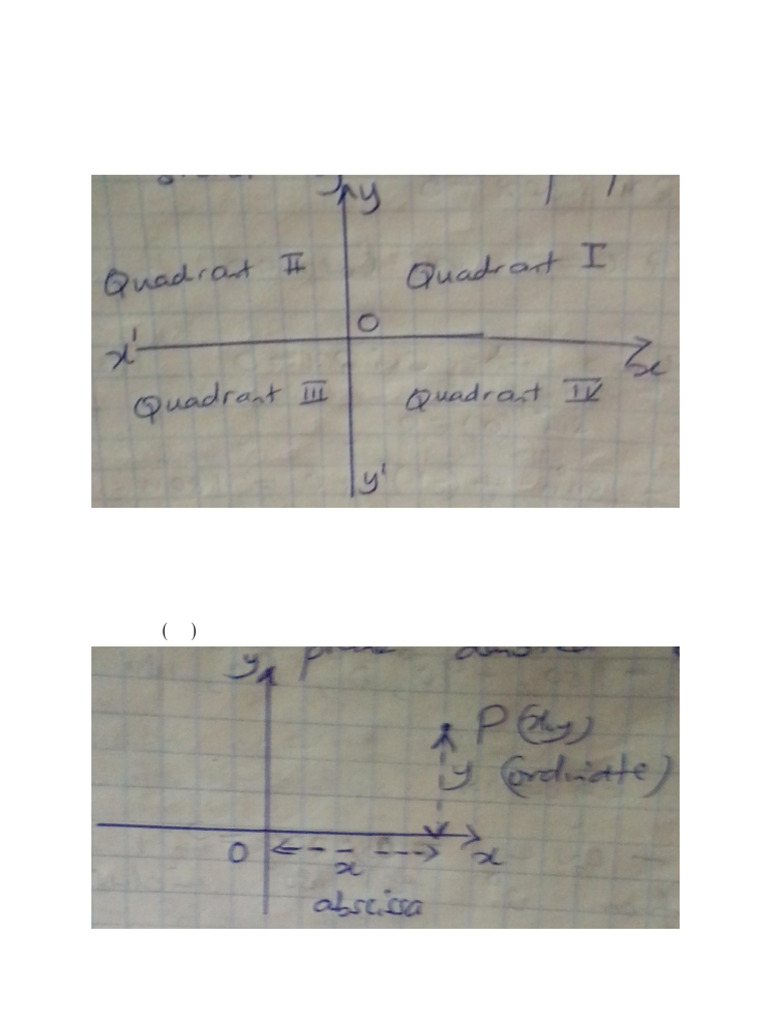 y
Quadrant II
Quadrant I
O
x'
x
Quadrant III
Quadrant IV
y'
( )
y
P(x,y)
y (ordinatte)
O
x
x
abscissa